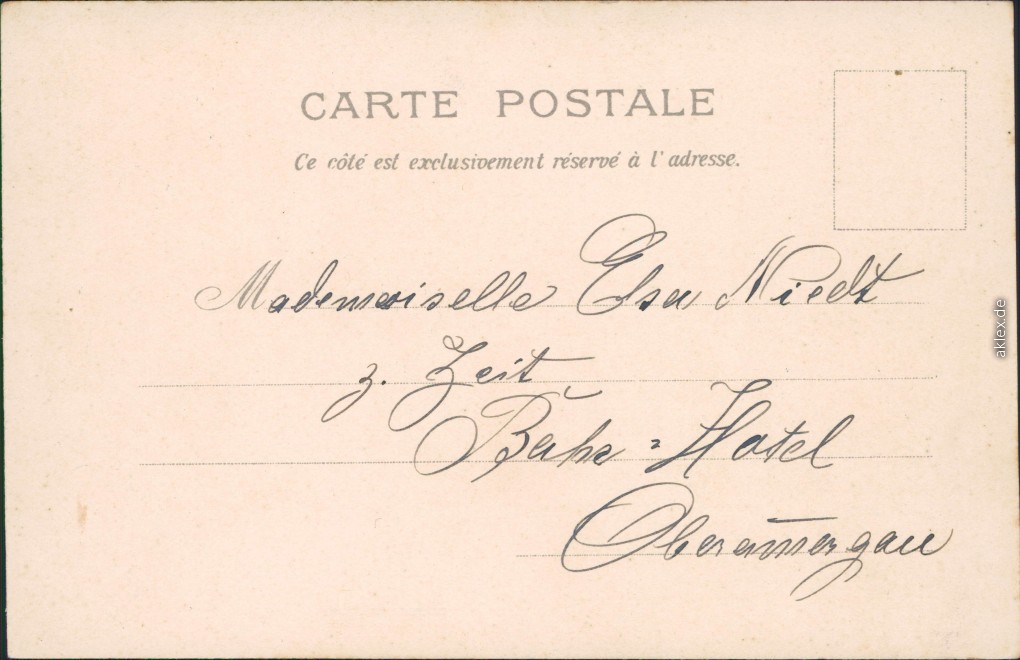 CARTE POSTALE
Ce côté est exclusivement réservé à l'adresse.
Mademoiselle Elsa Niedt
z. Zeit
Hotel
Oberam̅ergau
aklex.de